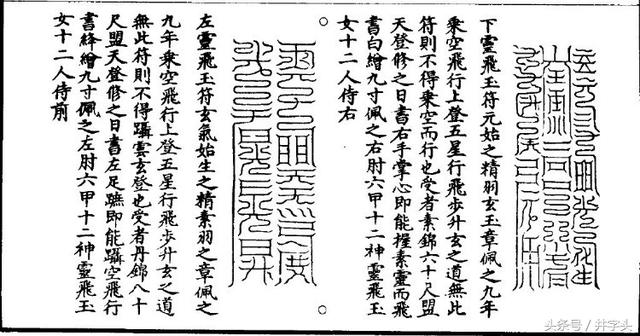 下靈飛玉符元始之精羽玄玉章佩之九年
乘空飛行上登五星行飛步升玄之道無此
符則不得乘空而行也受者素錦六十尺盟
天登修之日書右手掌心即能握素靈而飛
書白繒九寸佩之右肘六甲十二神靈飛玉
女十二人侍右
左靈飛玉符玄氣始生之精素羽之章佩之
九年乘空飛行上登五星行飛步升玄之道
無此符則不得躡雲玄登也受者丹錦八十
尺盟天登修之日書左足蹠即能躡空飛行
書絳繒九寸佩之左肘六甲十二神靈飛玉
女十二人侍前
头条号 / 井字头